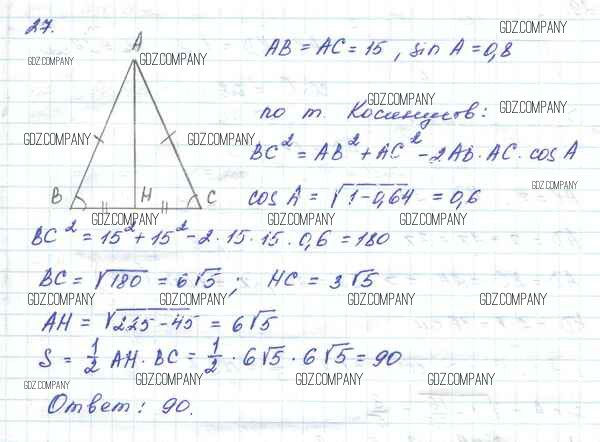 27.
GDZ.COMPANY
A
GDZ.COMPANY GDZ.COMPANY
AB = AC = 15, sin A = 0,8
GDZ.COMPANY
по т. Косинусов:
GDZ.COMPANY
GDZ.COMPANY GDZ.COMPANY
BC² = AB² + AC² - 2AB · AC · cos A
GDZ.COMPANY
B H C
cos A = √1-0,64 = 0,6
GDZ.COMPANY GDZ.COMPANY GDZ.COMPANY
BC² = 15² + 15² - 2 · 15 · 15 · 0,6 = 180
BC = √180 = 6√5 ; HC = 3√5
GDZ.COMPANY GDZ.COMPANY GDZ.COMPANY GDZ.COMPANY
AH = √225-45 = 6√5
S = 1/2 AH · BC = 1/2 · 6√5 · 6√5 = 90
GDZ.COMPANY GDZ.COMPANY GDZ.COMPANY GDZ.COMPANY
Ответ: 90.